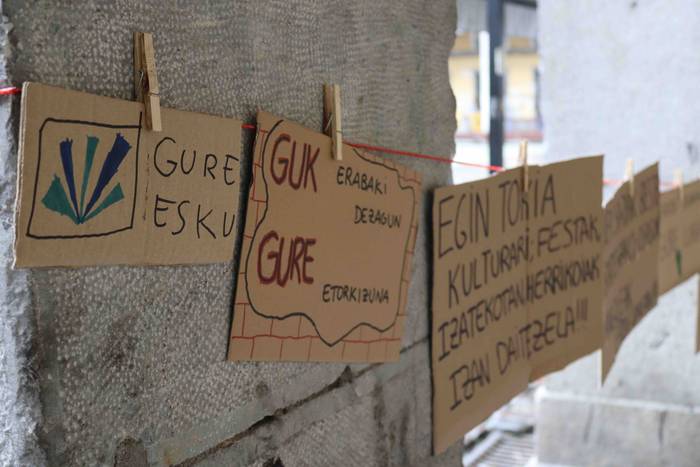 GURE
ESKU
GUK
ERABAKI
DEZAGUN
GURE
ETORKIZUNA
EGIN TOKIA
KULTURARI, FESTAK
IZATEKOTAN HERRIKOIAK
IZAN DAITEZELA!!!